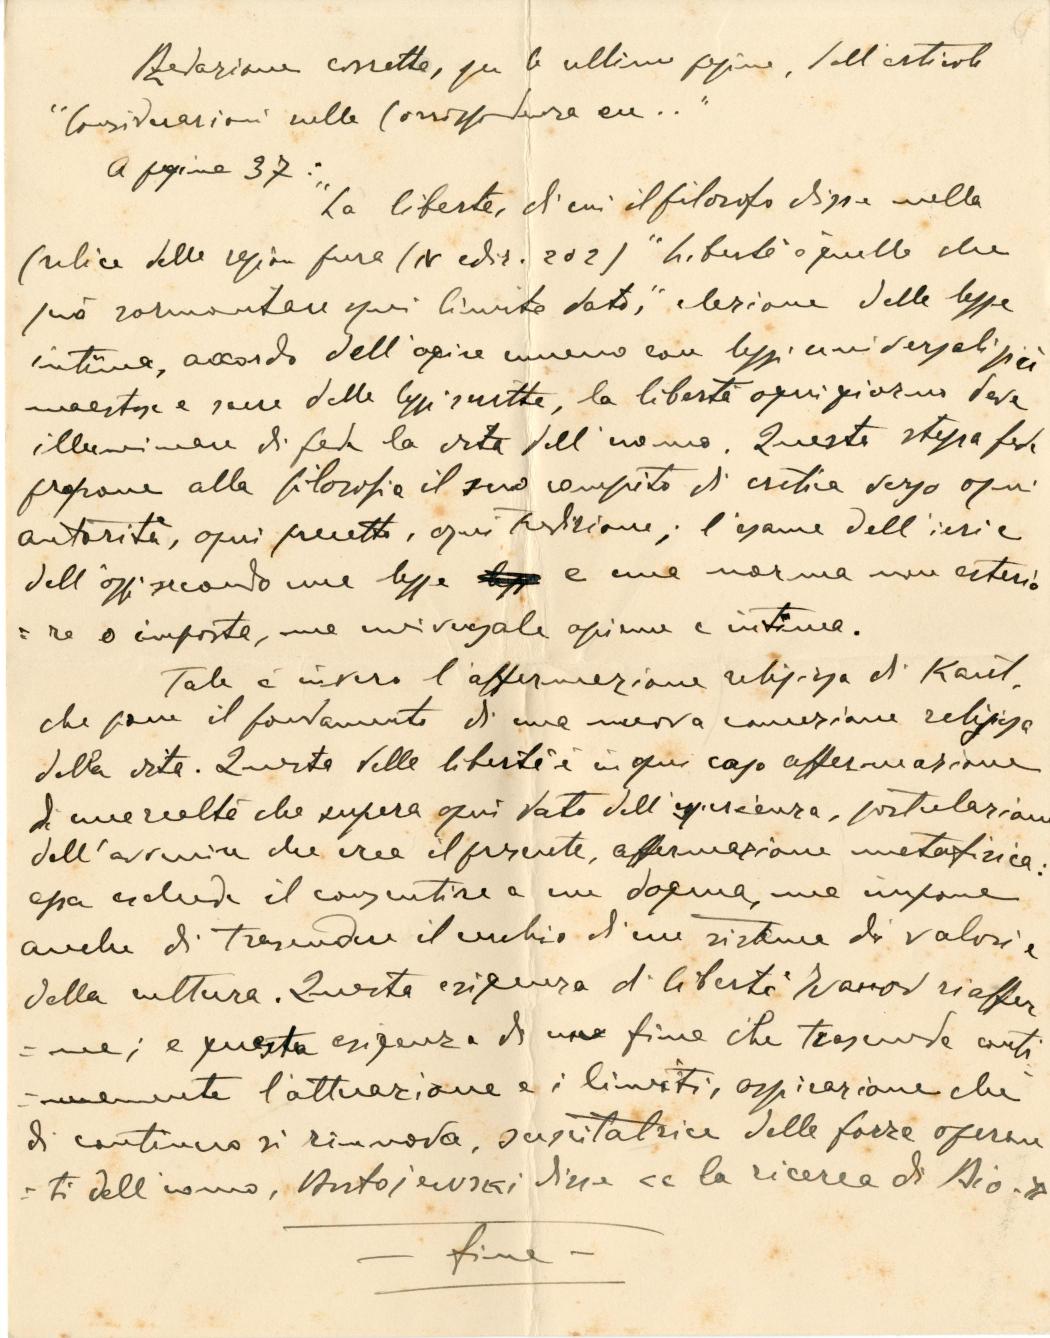 Redazione corretta, per le ultime pagine, dell'articolo
"Considerazioni sulla Corrispondenza ecc.."
A pagina 37 :
"La libertà, di cui il filosofo disse nella
Critica della ragion pura (IV ediz. 202) "Libertà è quella che
può sormontare ogni limite dato," elezione della legge
intima, accordo dell'agire umano con leggi universali più
maestose e sacre delle leggi scritte, la libertà ogni giorno deve
illuminare di fede la vita dell'uomo. Questa stessa fede
propone alla filosofia il suo compito di critica verso ogni
autorità, ogni precetto, ogni tradizione; l'esame dell'ieri e
dell'oggi secondo una legge e una norma non esterio
= re o imposta, ma universale e intima.
Tale è invero l'affermazione religiosa di Kant,
che pone il fondamento di una nuova concezione religiosa
della vita. Questa della libertà è in ogni caso affermazione
di una realtà che supera ogni dato dell'esperienza, postulazione
dell'avvenire che crea il presente, affermazione metafisica:
essa esclude il consentire a un dogma, ma impone
anche di trascendere il cerchio di un sistema di valori e
della cultura. Questa esigenza di libertà Ivanov riaffer
= ma; e questa esigenza di una fine che trascende conti
= nuamente l'attuazione e i limiti, aspirazione che
di continuo si rinnova, suscitatrice delle forze operan
= ti dell'uomo, Dostojewski disse << la ricerca di Dio. >>
— fine —